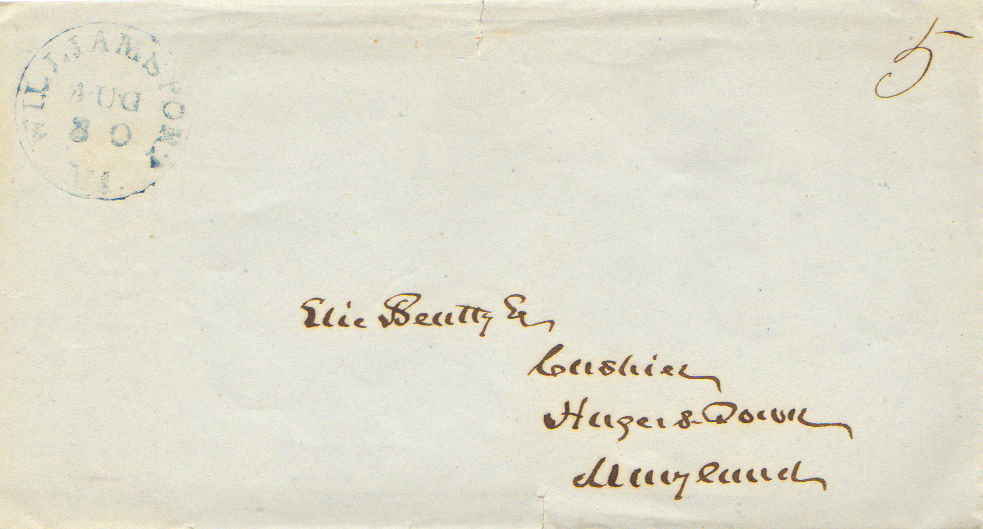 WILLIAMSPORT
AUG
Md.
5
Elie Beatty Esq
Cashier
Hagers Town
Maryland